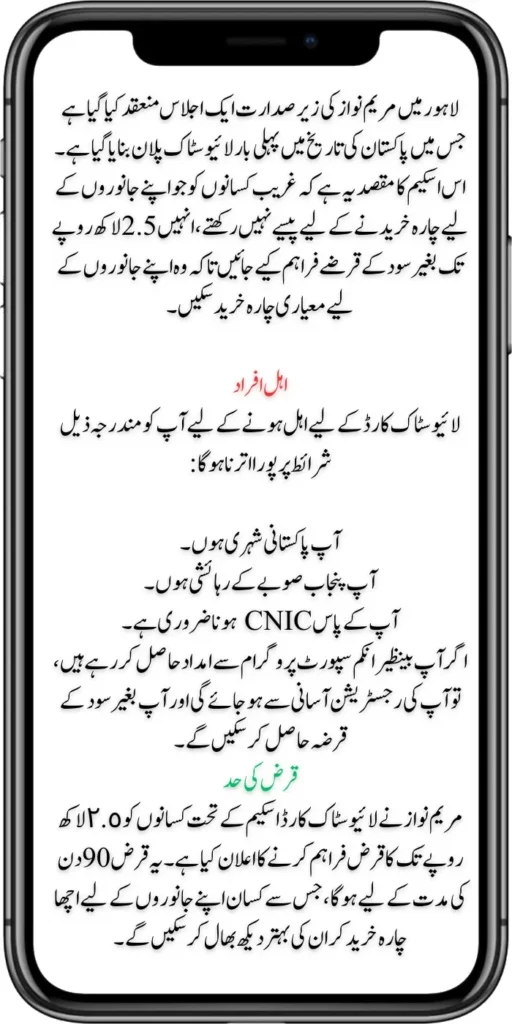 لاہور میں مریم نواز کی زیر صدارت ایک اجلاس منعقد کیا گیا ہے
جس میں پاکستان کی تاریخ میں پہلی بار لائیوسٹاک پلان بنایا گیا ہے۔
اس اسکیم کا مقصد یہ ہے کہ غریب کسانوں کو جو اپنے جانوروں کے
لیے چارہ خریدنے کے لیے پیسے نہیں رکھتے، انہیں 2.5 لاکھ روپے
تک بغیر سود کے قرضے فراہم کیے جائیں تاکہ وہ اپنے جانوروں کے
لیے معیاری چارہ خرید سکیں۔
اہل افراد
لائیوسٹاک کارڈ کے لیے اہل ہونے کے لیے آپ کو مندرجہ ذیل
شرائط پر پورا اترنا ہوگا:
آپ پاکستانی شہری ہوں۔
آپ پنجاب صوبے کے رہائشی ہوں۔
آپ کے پاس CNIC ہونا ضروری ہے۔
اگر آپ بینظیر انکم سپورٹ پروگرام سے امداد حاصل کر رہے ہیں،
تو آپ کی رجسٹریشن آسانی سے ہو جائے گی اور آپ بغیر سود کے
قرضہ حاصل کر سکیں گے۔
قرض کی حد
مریم نواز نے لائیوسٹاک کارڈ اسکیم کے تحت کسانوں کو ۲.۵ لاکھ
روپے تک کا قرض فراہم کرنے کا اعلان کیا ہے۔ یہ قرض 90 دن
کی مدت کے لیے ہوگا، جس سے کسان اپنے جانوروں کے لیے اچھا
چارہ خرید کر ان کی بہتر دیکھ بھال کر سکیں گے۔